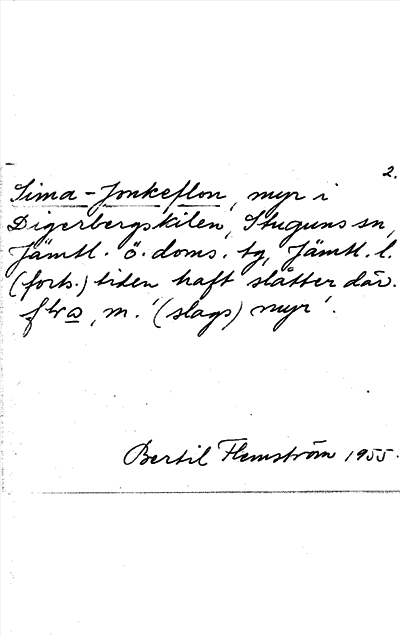 2.
Sima-Jonkeflon, myr i
Digerbergskilen, Stuguns sn,
Jämtl. ö. doms. tg, Jämtl. l.
(forts.) tiden haft slåtter där.
flo̲a̲, m. '(slags) myr'.
Bertil Flemström 1955.